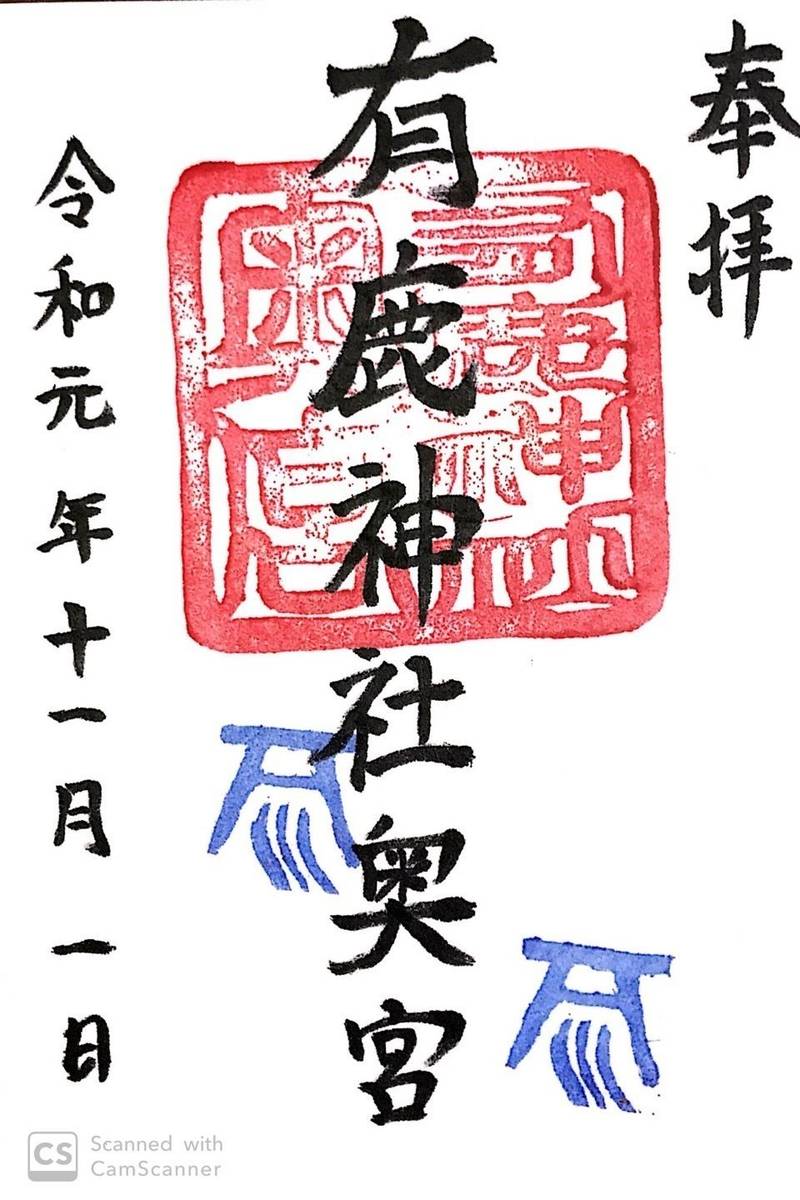 奉拝
有鹿神社奥宮
有鹿神社
奥宮
令和元年十一月一日
CS Scanned with
CamScanner